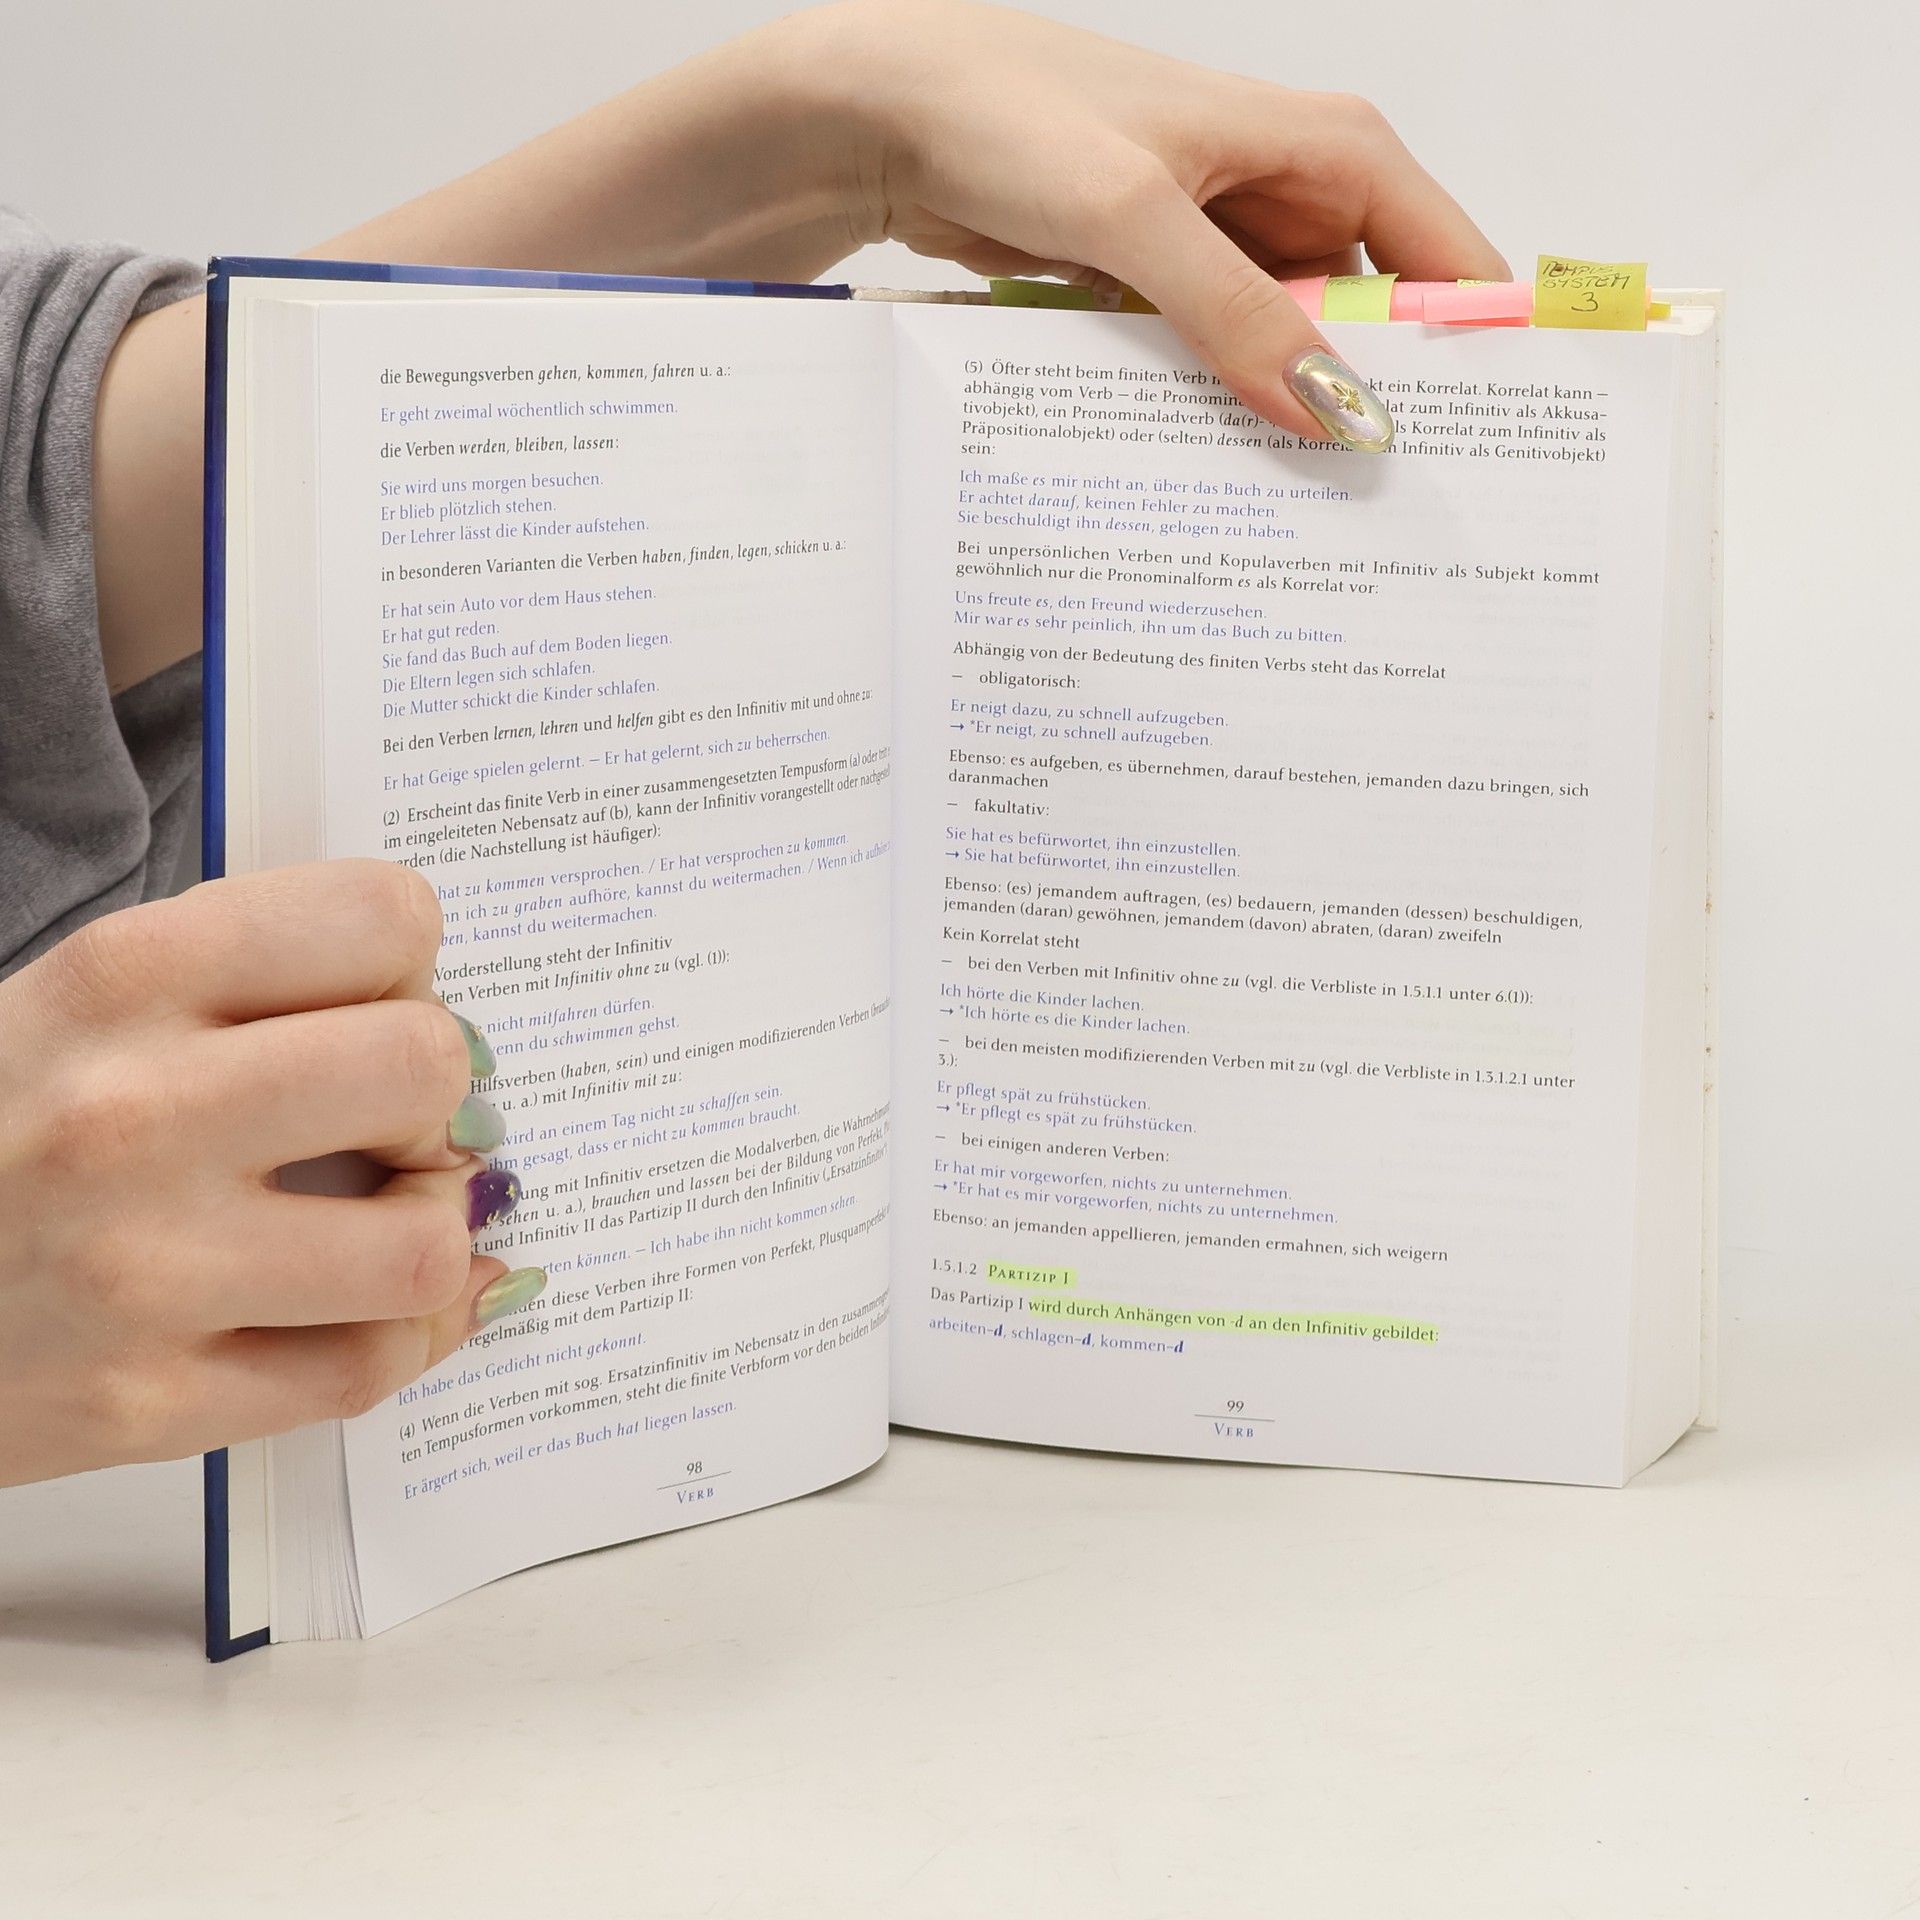 TEMPUS
SYSTEM
3
die Bewegungsverben gehen, kommen, fahren u. a.:
Er geht zweimal wöchentlich schwimmen.
die Verben werden, bleiben, lassen:
Sie wird uns morgen besuchen.
Er blieb plötzlich stehen.
Der Lehrer lässt die Kinder aufstehen.
in besonderen Varianten die Verben haben, finden, legen, schicken u. a.:
Er hat sein Auto vor dem Haus stehen.
Er hat gut reden.
Sie fand das Buch auf dem Boden liegen.
Die Eltern legen sich schlafen.
Die Mutter schickt die Kinder schlafen.
Bei den Verben lernen, lehren und helfen gibt es den Infinitiv mit und ohne zu:
Er hat Geige spielen gelernt. – Er hat gelernt, sich zu beherrschen.
(2) Erscheint das finite Verb in einer zusammengesetzten Tempusform (a) oder tritt
im eingeleiteten Nebensatz auf (b), kann der Infinitiv vorangestellt oder
(die Nachstellung ist häufiger):
hat zu kommen versprochen. / Er hat versprochen zu kommen.
ich zu graben aufhöre, kannst du weitermachen. / Wenn ich
kannst du weitermachen.
Vorderstellung steht der Infinitiv
den Verben mit Infinitiv ohne zu (vgl. (1)):
nicht mitfahren dürfen.
wenn du schwimmen gehst.
Hilfsverben (haben, sein) und einigen modifizierenden Verben
u. a.) mit Infinitiv mit zu:
wird an einem Tag nicht zu schaffen sein.
ihm gesagt, dass er nicht zu kommen braucht.
mit Infinitiv ersetzen die Modalverben, die
sehen u. a.), brauchen und lassen bei der Bildung von Perfekt,
und Infinitiv II das Partizip II durch den Infinitiv („Ersatzinfinitiv“):
können. – Ich habe ihn nicht kommen sehen.
diese Verben ihre Formen von Perfekt, Plusquamperfekt
regelmäßig mit dem Partizip II:
Ich habe das Gedicht nicht gekonnt.
(4) Wenn die Verben mit sog. Ersatzinfinitiv im Nebensatz in den
ten Tempusformen vorkommen, steht die finite Verbform vor den beiden
Er ärgert sich, weil er das Buch hat liegen lassen.
98
VERB
(5) Öfter steht beim finiten Verb ein Korrelat. Korrelat kann –
abhängig vom Verb – die zum Infinitiv als Akkusa-
tivobjekt), ein Pronominaladverb (da(r)- als Korrelat zum Infinitiv als
Präpositionalobjekt) oder (selten) dessen (als Infinitiv als Genitivobjekt)
sein:
Ich maße es mir nicht an, über das Buch zu urteilen.
Er achtet darauf, keinen Fehler zu machen.
Sie beschuldigt ihn dessen, gelogen zu haben.
Bei unpersönlichen Verben und Kopulaverben mit Infinitiv als Subjekt kommt
gewöhnlich nur die Pronominalform es als Korrelat vor:
Uns freute es, den Freund wiederzusehen.
Mir war es sehr peinlich, ihn um das Buch zu bitten.
Abhängig von der Bedeutung des finiten Verbs steht das Korrelat
– obligatorisch:
Er neigt dazu, zu schnell aufzugeben.
→ *Er neigt, zu schnell aufzugeben.
Ebenso: es aufgeben, es übernehmen, darauf bestehen, jemanden dazu bringen, sich
daranmachen
– fakultativ:
Sie hat es befürwortet, ihn einzustellen.
→ Sie hat befürwortet, ihn einzustellen.
Ebenso: (es) jemandem auftragen, (es) bedauern, jemanden (dessen) beschuldigen,
jemanden (daran) gewöhnen, jemandem (davon) abraten, (daran) zweifeln
Kein Korrelat steht
– bei den Verben mit Infinitiv ohne zu (vgl. die Verbliste in 1.5.1.1 unter 6.(1)):
Ich hörte die Kinder lachen.
→ *Ich hörte es die Kinder lachen.
– bei den meisten modifizierenden Verben mit zu (vgl. die Verbliste in 1.3.1.2.1 unter
3.):
Er pflegt spät zu frühstücken.
→ *Er pflegt es spät zu frühstücken.
– bei einigen anderen Verben:
Er hat mir vorgeworfen, nichts zu unternehmen.
→ *Er hat es mir vorgeworfen, nichts zu unternehmen.
Ebenso: an jemanden appellieren, jemanden ermahnen, sich weigern
1.5.1.2 PARTIZIP I
Das Partizip I wird durch Anhängen von -d an den Infinitiv gebildet:
arbeiten-d, schlagen-d, kommen-d
99
VERB